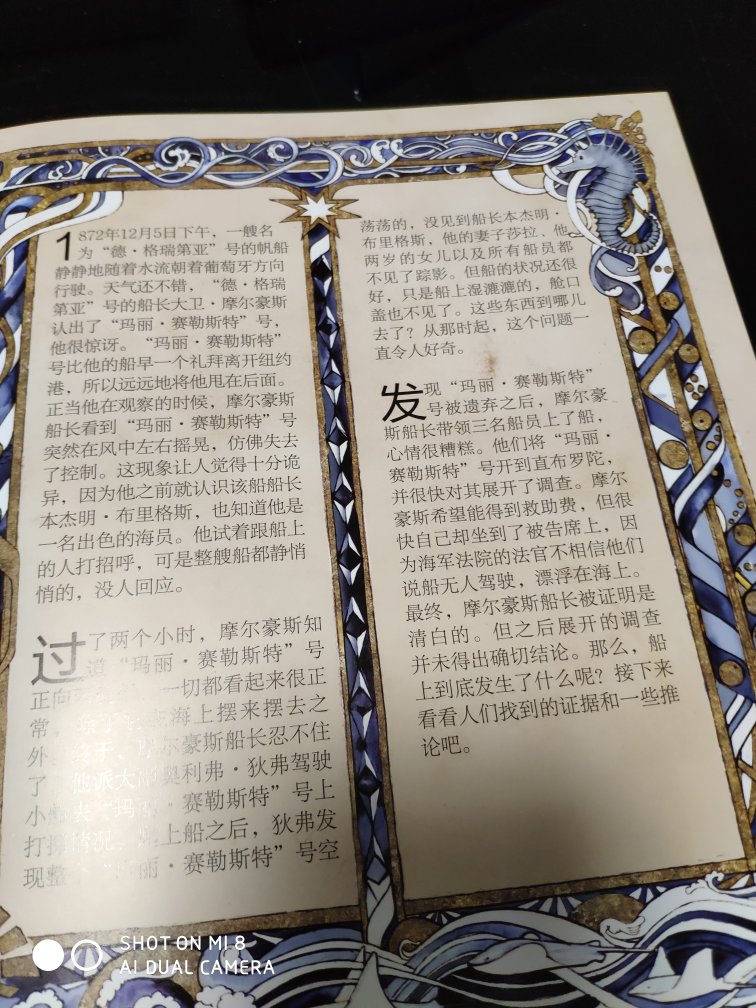 1872年12月5日下午，一艘名
为“德·格瑞第亚”号的帆船
静静地随着水流朝着葡萄牙方向
行驶。天气还不错，“德·格瑞
第亚”号的船长大卫·摩尔豪斯
认出了“玛丽·赛勒斯特”号，
他很惊讶。“玛丽·赛勒斯特”
号比他的船早一个礼拜离开纽约
港，所以远远地将他甩在后面。
正当他在观察的时候，摩尔豪斯
船长看到“玛丽·赛勒斯特”号
突然在风中左右摇晃，仿佛失去
了控制。这现象让人觉得十分诡
异，因为他之前就认识该船船长
本杰明·布里格斯，也知道他是
一名出色的海员。他试着跟船上
的人打招呼，可是整艘船都静悄
悄的，没人回应。
过了两个小时，摩尔豪斯知
道“玛丽·赛勒斯特”号
正向 一切都看起来很正
常， 海上摆来摆去之
外。终于，摩尔豪斯船长忍不住
了，他派大副奥利弗·狄弗驾驶
小船去“玛丽·赛勒斯特”号上
打探情况。登上船之后，狄弗发
现整 “玛丽·赛勒斯特”号空
荡荡的，没见到船长本杰明·
布里格斯，他的妻子莎拉、他
两岁的女儿以及所有船员都
不见了踪影。但船的状况还很
好，只是船上湿漉漉的，舱口
盖也不见了。这些东西到哪儿
去了？从那时起，这个问题一
直令人好奇。
发现“玛丽·赛勒斯特”
号被遗弃之后，摩尔豪
斯船长带领三名船员上了船，
心情很糟糕。他们将“玛丽·
赛勒斯特”号开到直布罗陀，
并很快对其展开了调查。摩尔
豪斯希望能得到救助费，但很
快自己却坐到了被告席上，因
为海军法院的法官不相信他们
说船无人驾驶，漂浮在海上。
最终，摩尔豪斯船长被证明是
清白的。但之后展开的调查
并未得出确切结论。那么，船
上到底发生了什么呢？接下来
看看人们找到的证据和一些推
论吧。
SHOT ON MI 8
AI DUAL CAMERA